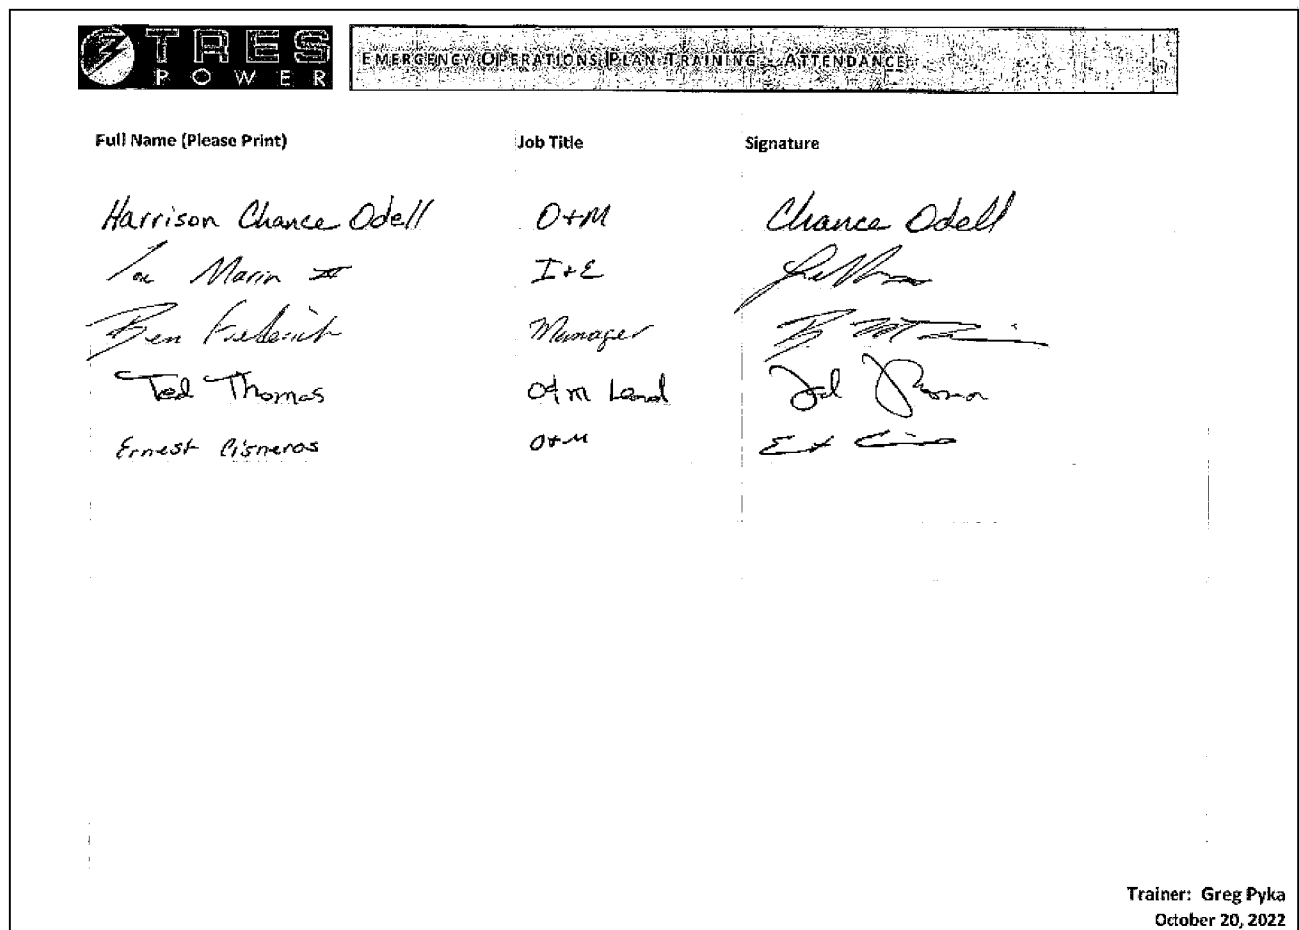 TRES
POWER
EMERGENCY OPERATIONS PLAN TRAINING – ATTENDANCE
Full Name (Please Print) Job Title Signature
Harrison Chance Odell O+M Chance Odell
Marin II I+E
Ben Frederich Manager
Ted Thomas O+M Lead Ted Thomas
Ernest Cisneros O+M
Trainer: Greg Pyka
October 20, 2022